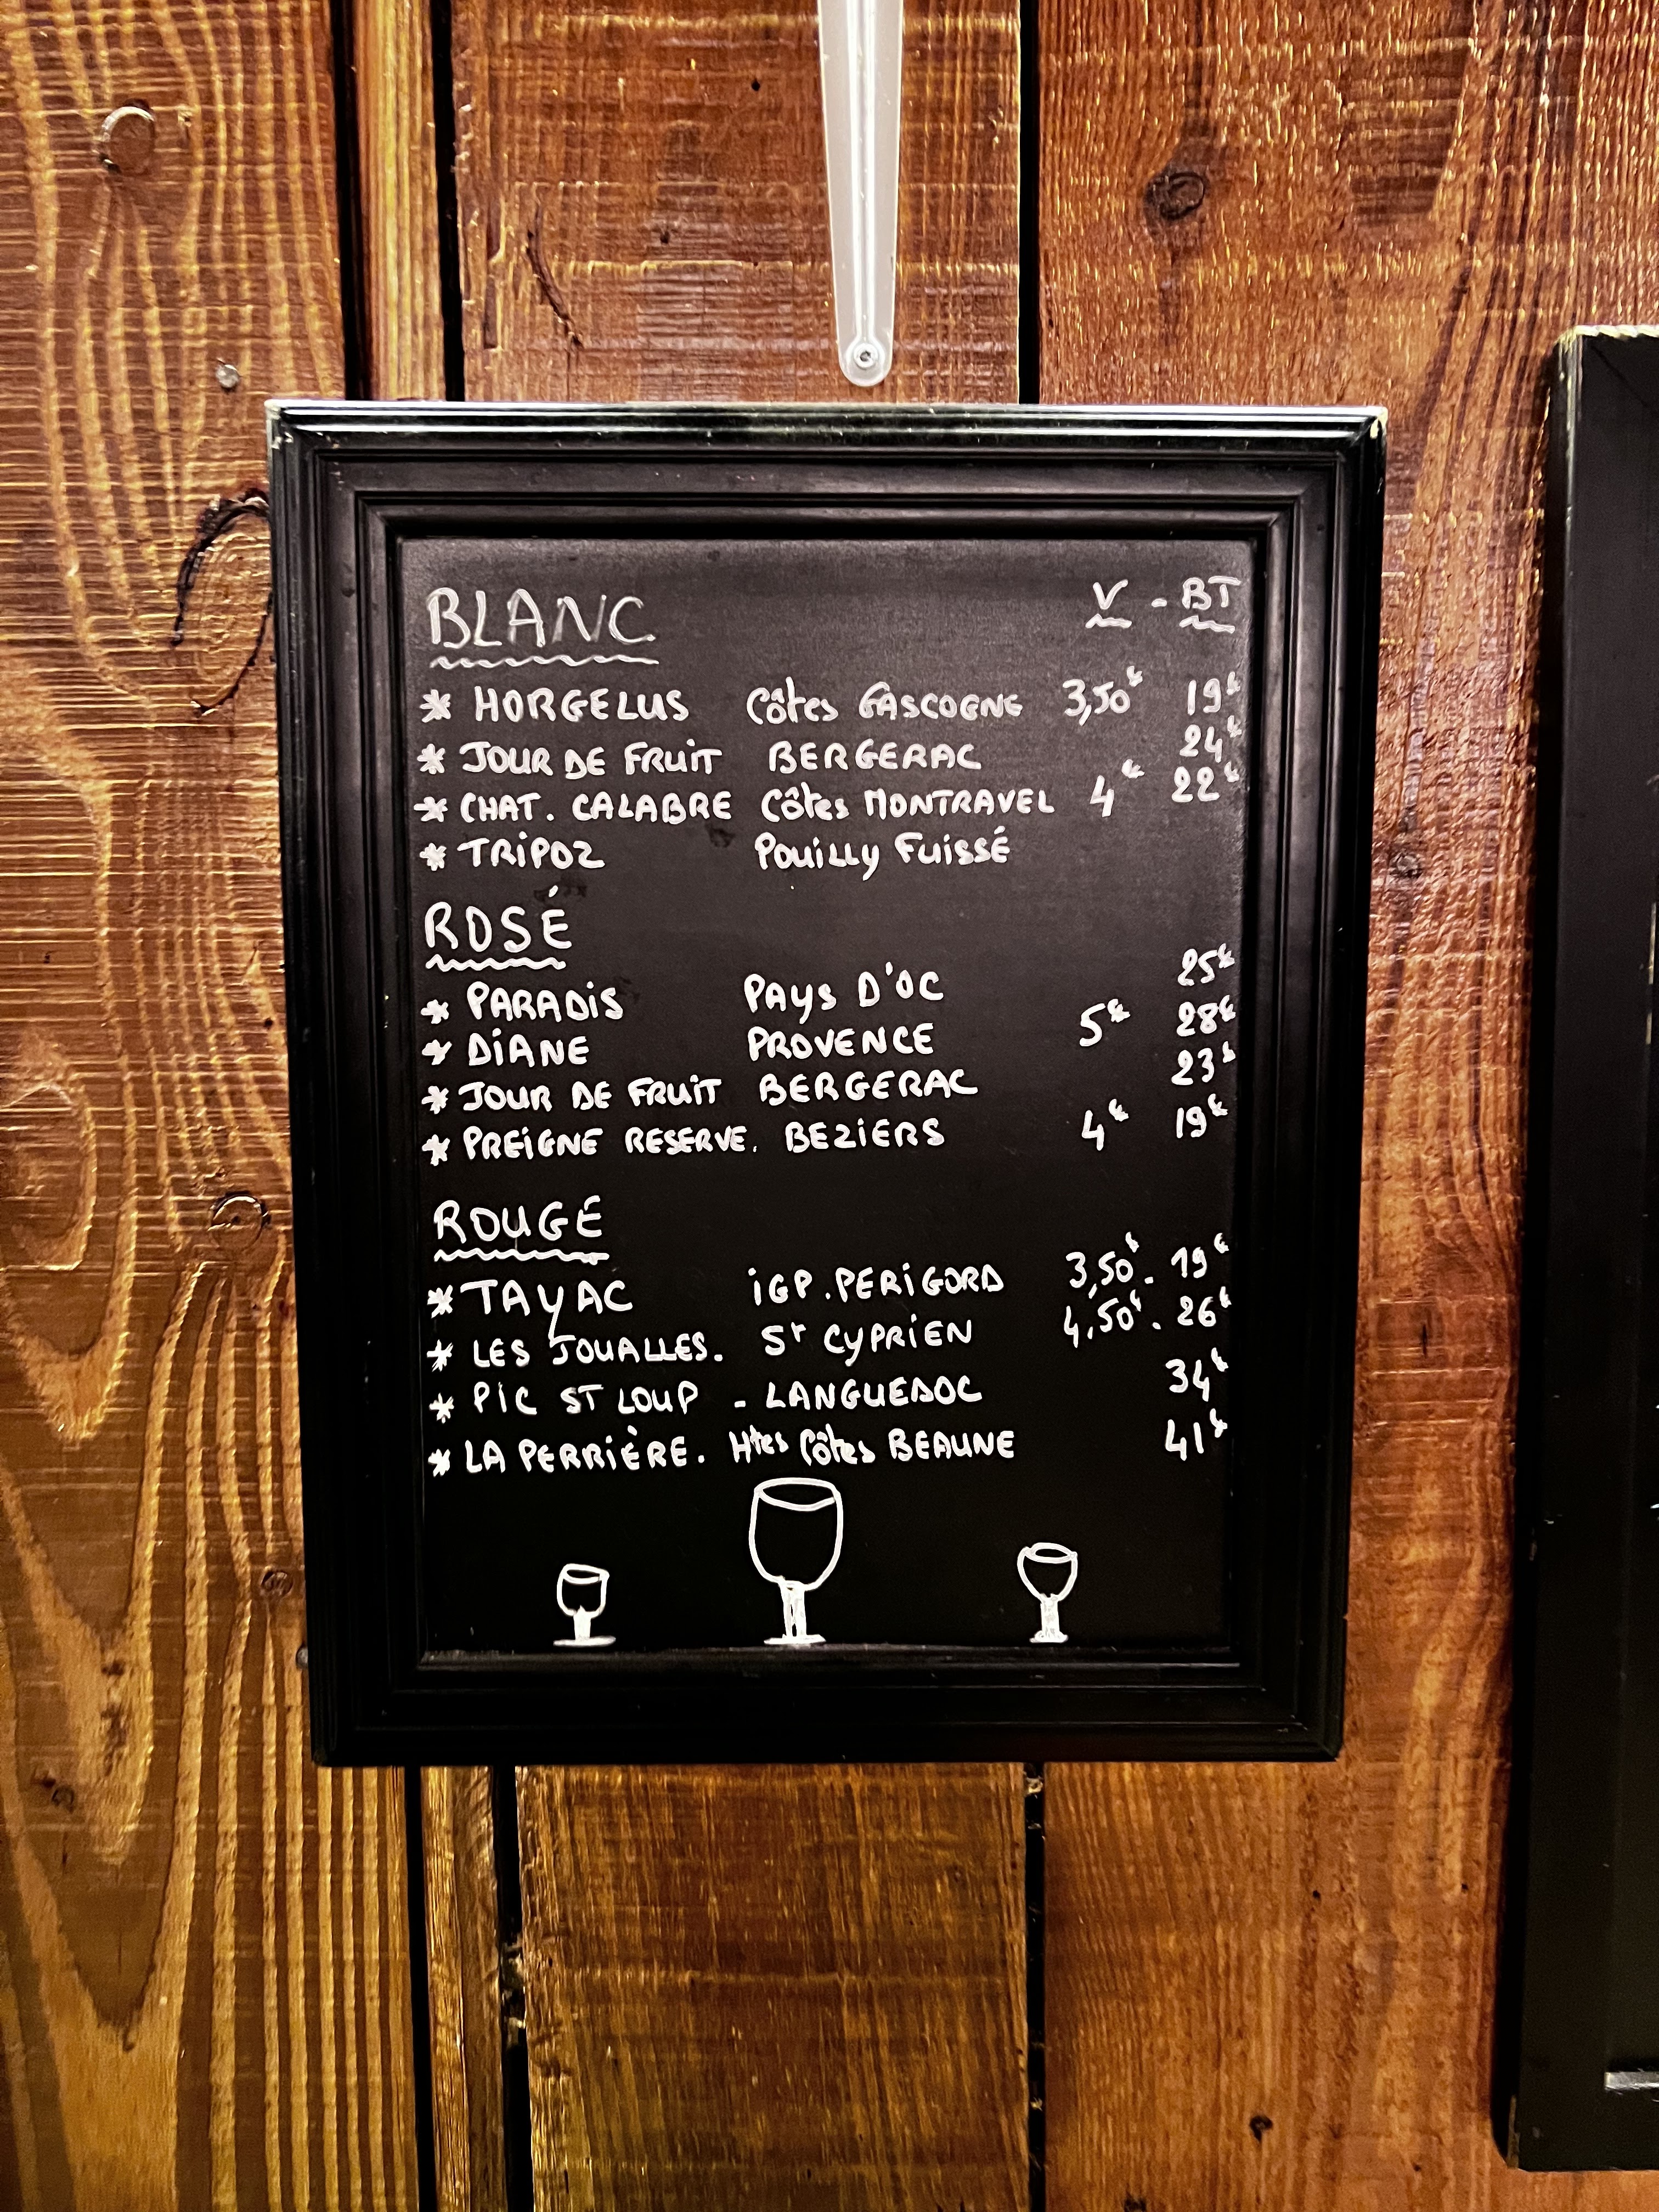 BLANC V - BT
* HORGELUS Côtes GASCOGNE 3,50€ 19€
* JOUR DE FRUIT BERGERAC 24€
* CHAT. CALABRE Côtes MONTRAVEL 4€ 22€
* TRIPOZ Pouilly Fuissé
ROSÉ
* PARADIS PAYS D'OC 25€
* DIANE PROVENCE 5€ 28€
* JOUR DE FRUIT BERGERAC 23€
* PREIGNE RESERVE. BEZIERS 4€ 19€
ROUGE
* TAYAC IGP.PERIGORD 3,50€. 19€
* LES JOUALLES. St CYPRIEN 4,50€. 26€
* PIC ST LOUP - LANGUEDOC 34€
* LA PERRIÈRE. Htes Côtes BEAUNE 41€